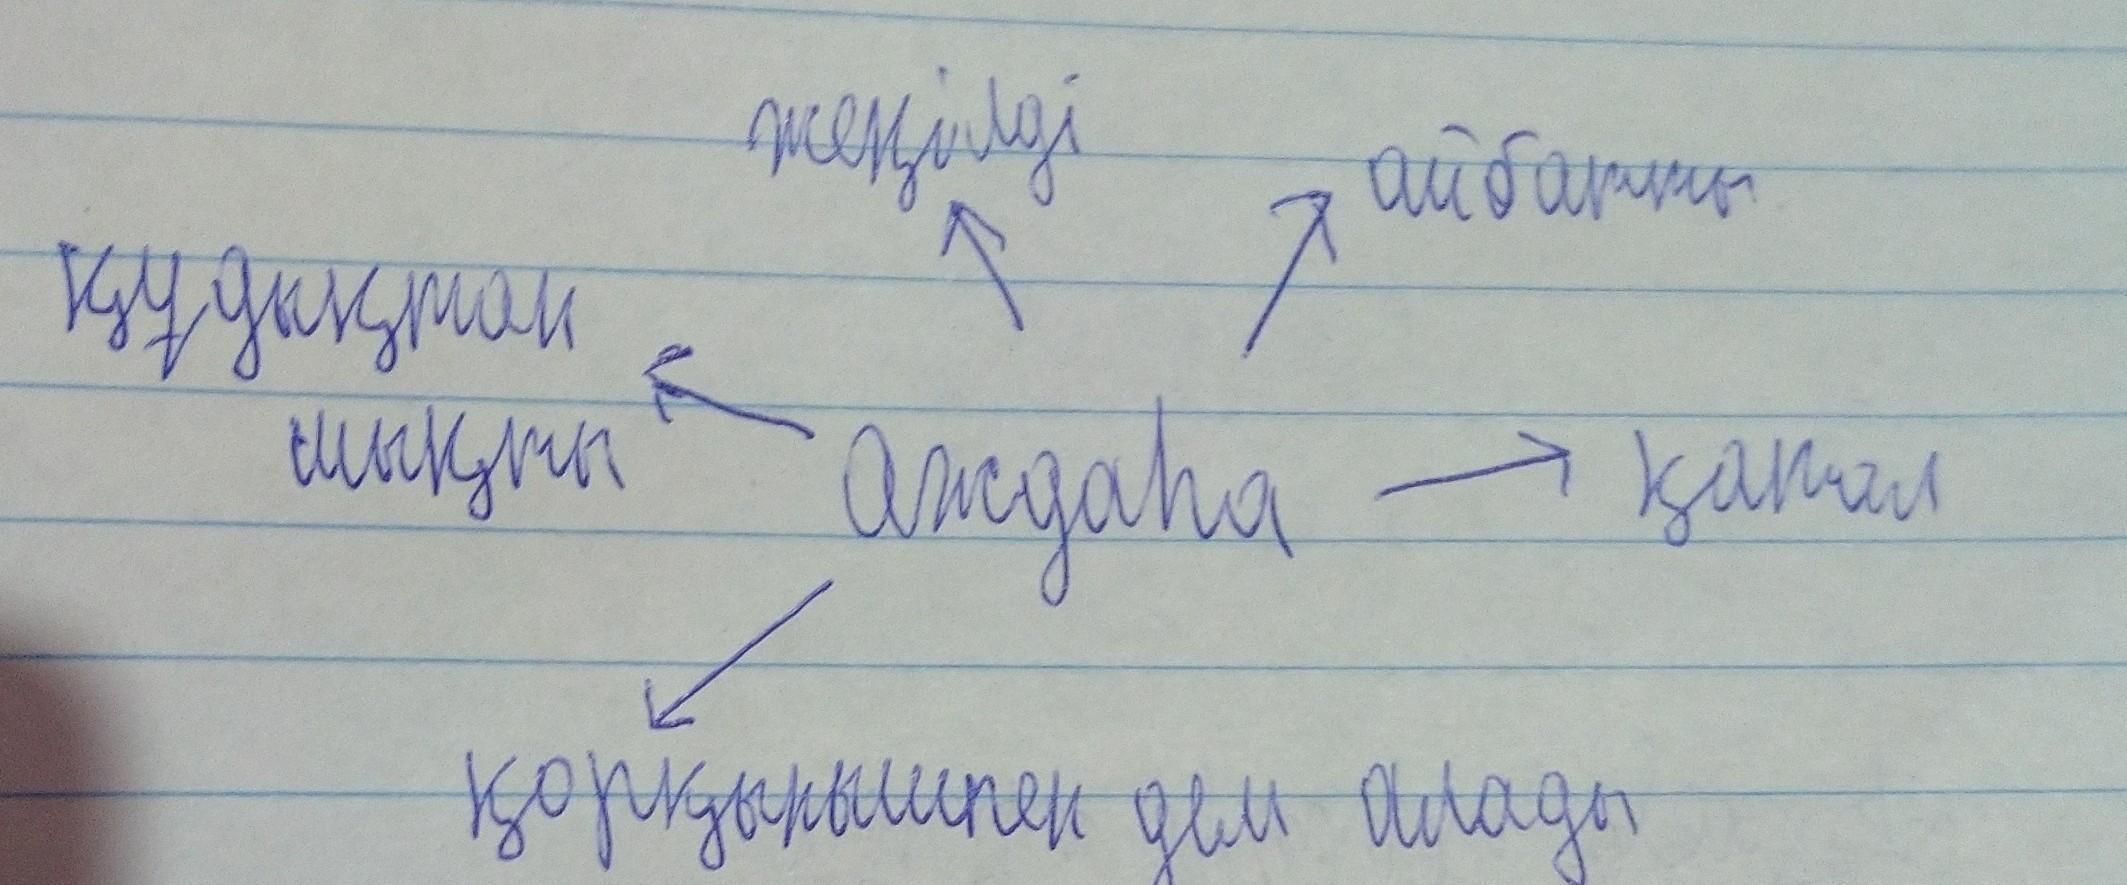 жеңілді
айбатты
құдықтан
шықты
Аждаһа
қатал
қорқынышпен дем алады